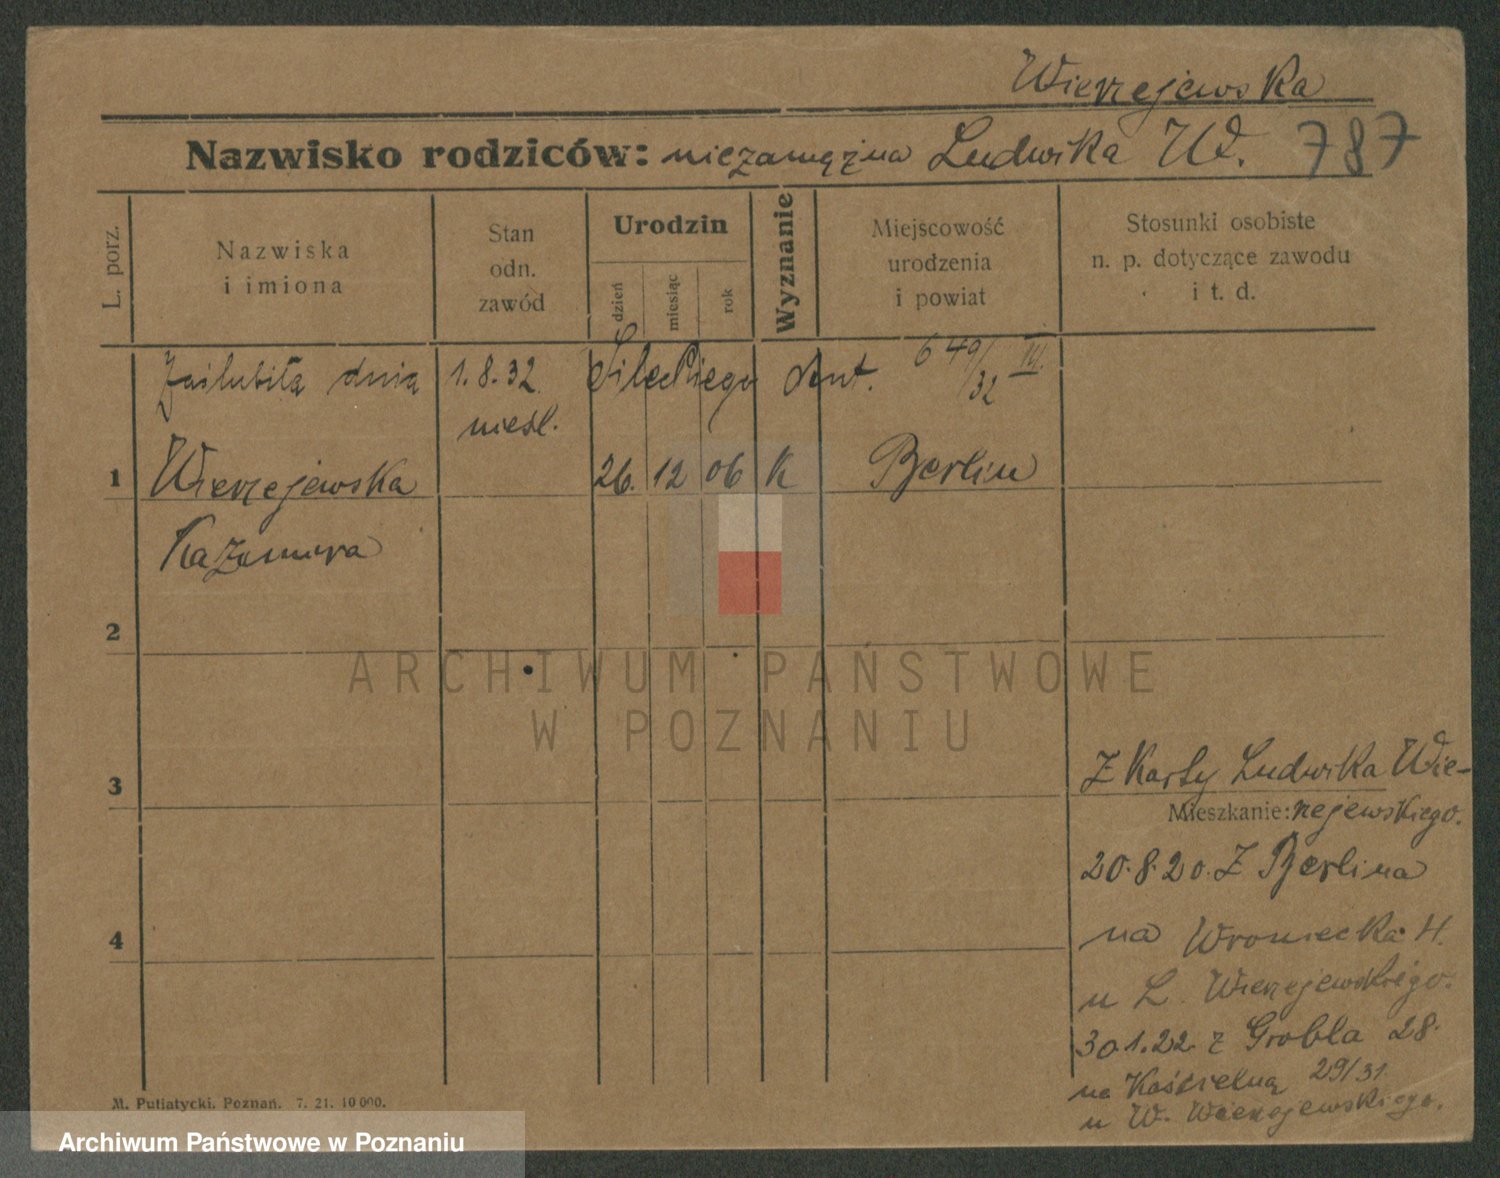 Wierzejewska
Nazwisko rodziców: niezamężna Ludwika W. 787
L. porz.
Nazwiska i imiona
Stan odn. zawód
Urodzin
dzień
miesiąc
rok
Wyznanie
Miejscowość urodzenia i powiat
Stosunki osobiste n. p. dotyczące zawodu i t. d.
Zaślubiła dnia 1.8.32 Sileckiego Ant. 649/32 III.
nieśl.
1 Wierzejewska 26. 12 06 K Berlin
Kazimiera
2
3
4
Z Karty Ludwika Wie-
Mieszkanie: rzejewskiego.
20.8.20. Z Berlina
na Wroniecka 4.
u L. Wierzejewskiego.
30.1.22 z Grobla 28.
na Kościelną 29/31
u W. Wierzejewskiego.
M. Putiatycki, Poznań. 7. 21. 10 000.
ARCHIWUM PAŃSTWOWE
W POZNANIU
Archiwum Państwowe w Poznaniu